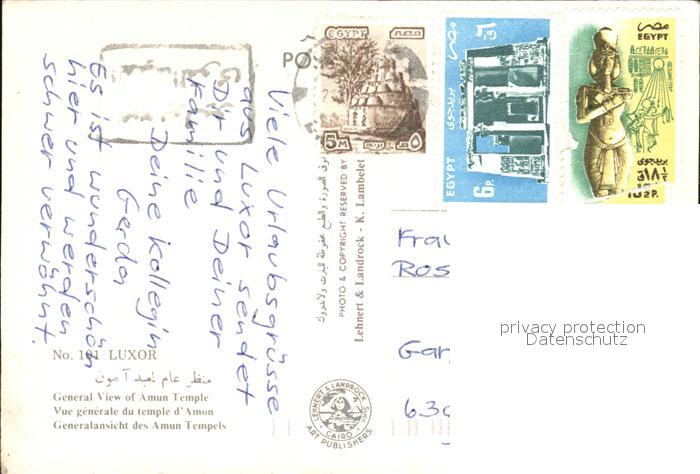 Viele Urlaubsgrüsse
aus Luxor sendet
Dir und Deiner
Familie
Deine Kollegin
Gerda
Es ist wunderschön
hier und werden
schwer verwöhnt.
No. 101 LUXOR
منظر عام لمعبد آمون
General View of Amun Temple
Vue générale du temple d'Amon
Generalansicht des Amun Tempels
PHOTO & COPYRIGHT RESERVED BY
Lehnert & Landrock - K. Lambelet
LEHNERT & LANDROCK SUCC.
CAIRO
ART PUBLISHERS
EGYPT
مصر
5M
٥م
مصر
بريد جوى
EGYPT
6P.
مصر
EGYPT
بريد جوى
Frau
Ros
Gar
630
privacy protection
Datenschutz